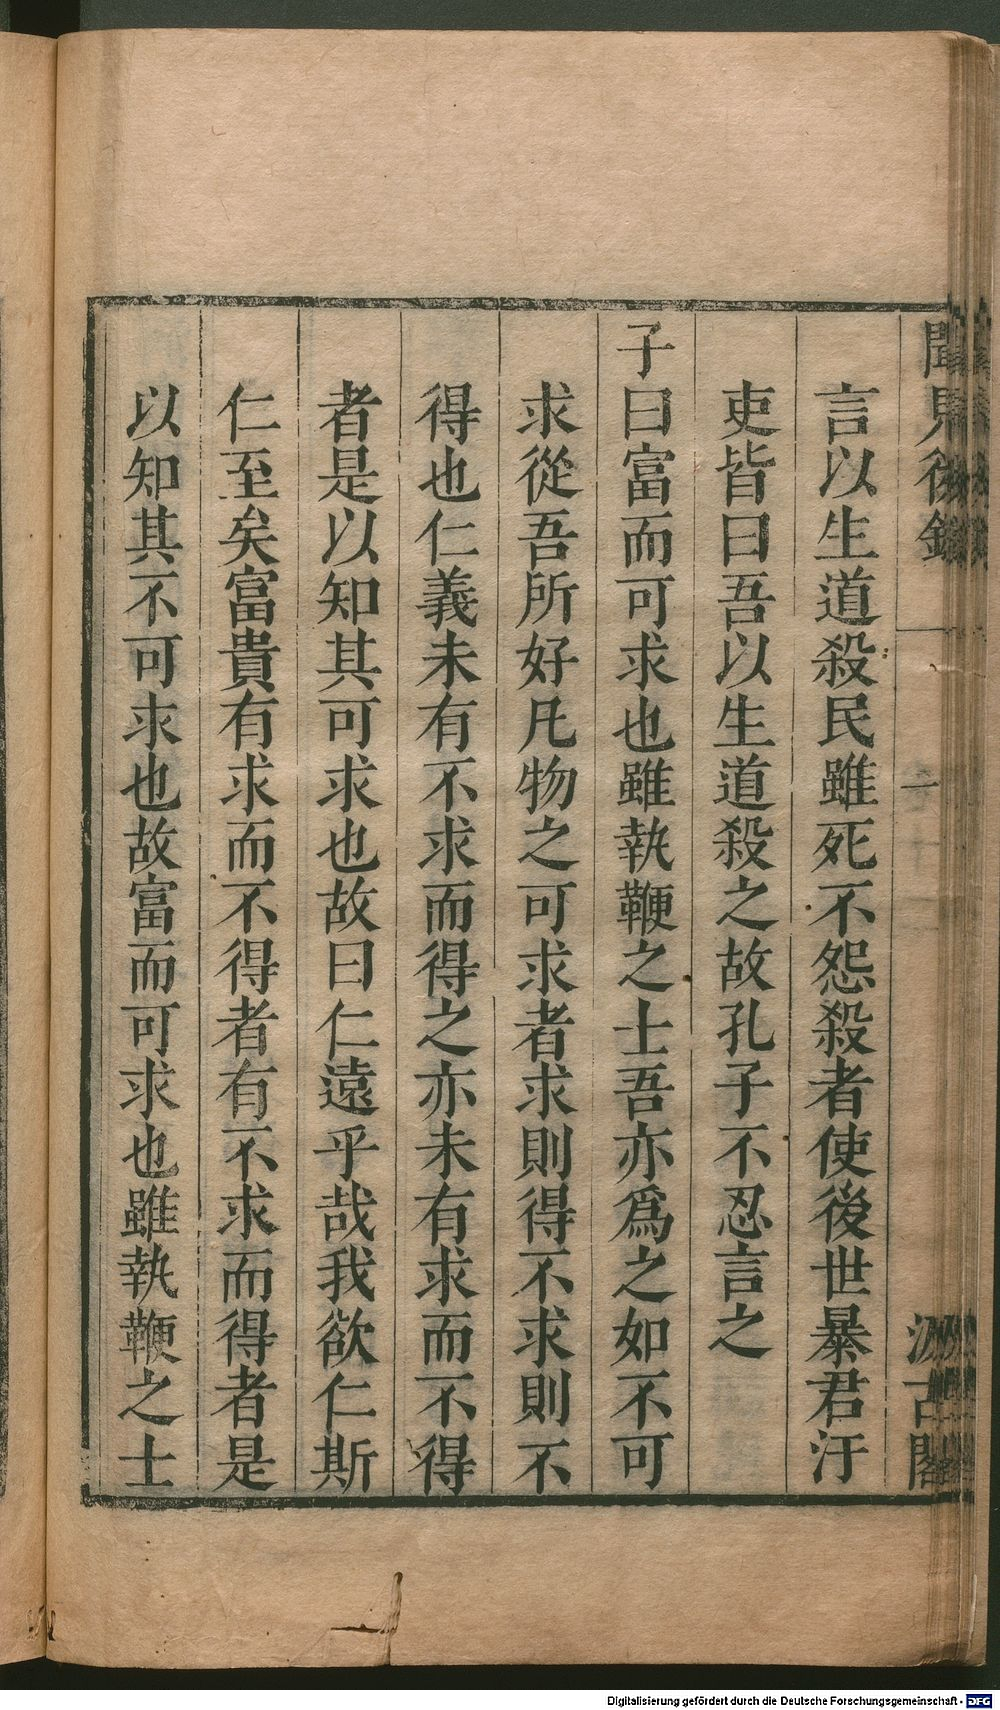 聞見後錄
汲古閣
言以生道殺民雖死不怨殺者使後世暴君汙
吏皆曰吾以生道殺之故孔子不忍言之
子曰富而可求也雖執鞭之士吾亦爲之如不可
求從吾所好凡物之可求者求則得不求則不
得也仁義未有不求而得之亦未有求而不得
者是以知其可求也故曰仁遠乎哉我欲仁斯
仁至矣富貴有求而不得者有不求而得者是
以知其不可求也故富而可求也雖執鞭之士
Digitalisierung gefördert durch die Deutsche Forschungsgemeinschaft - DFG